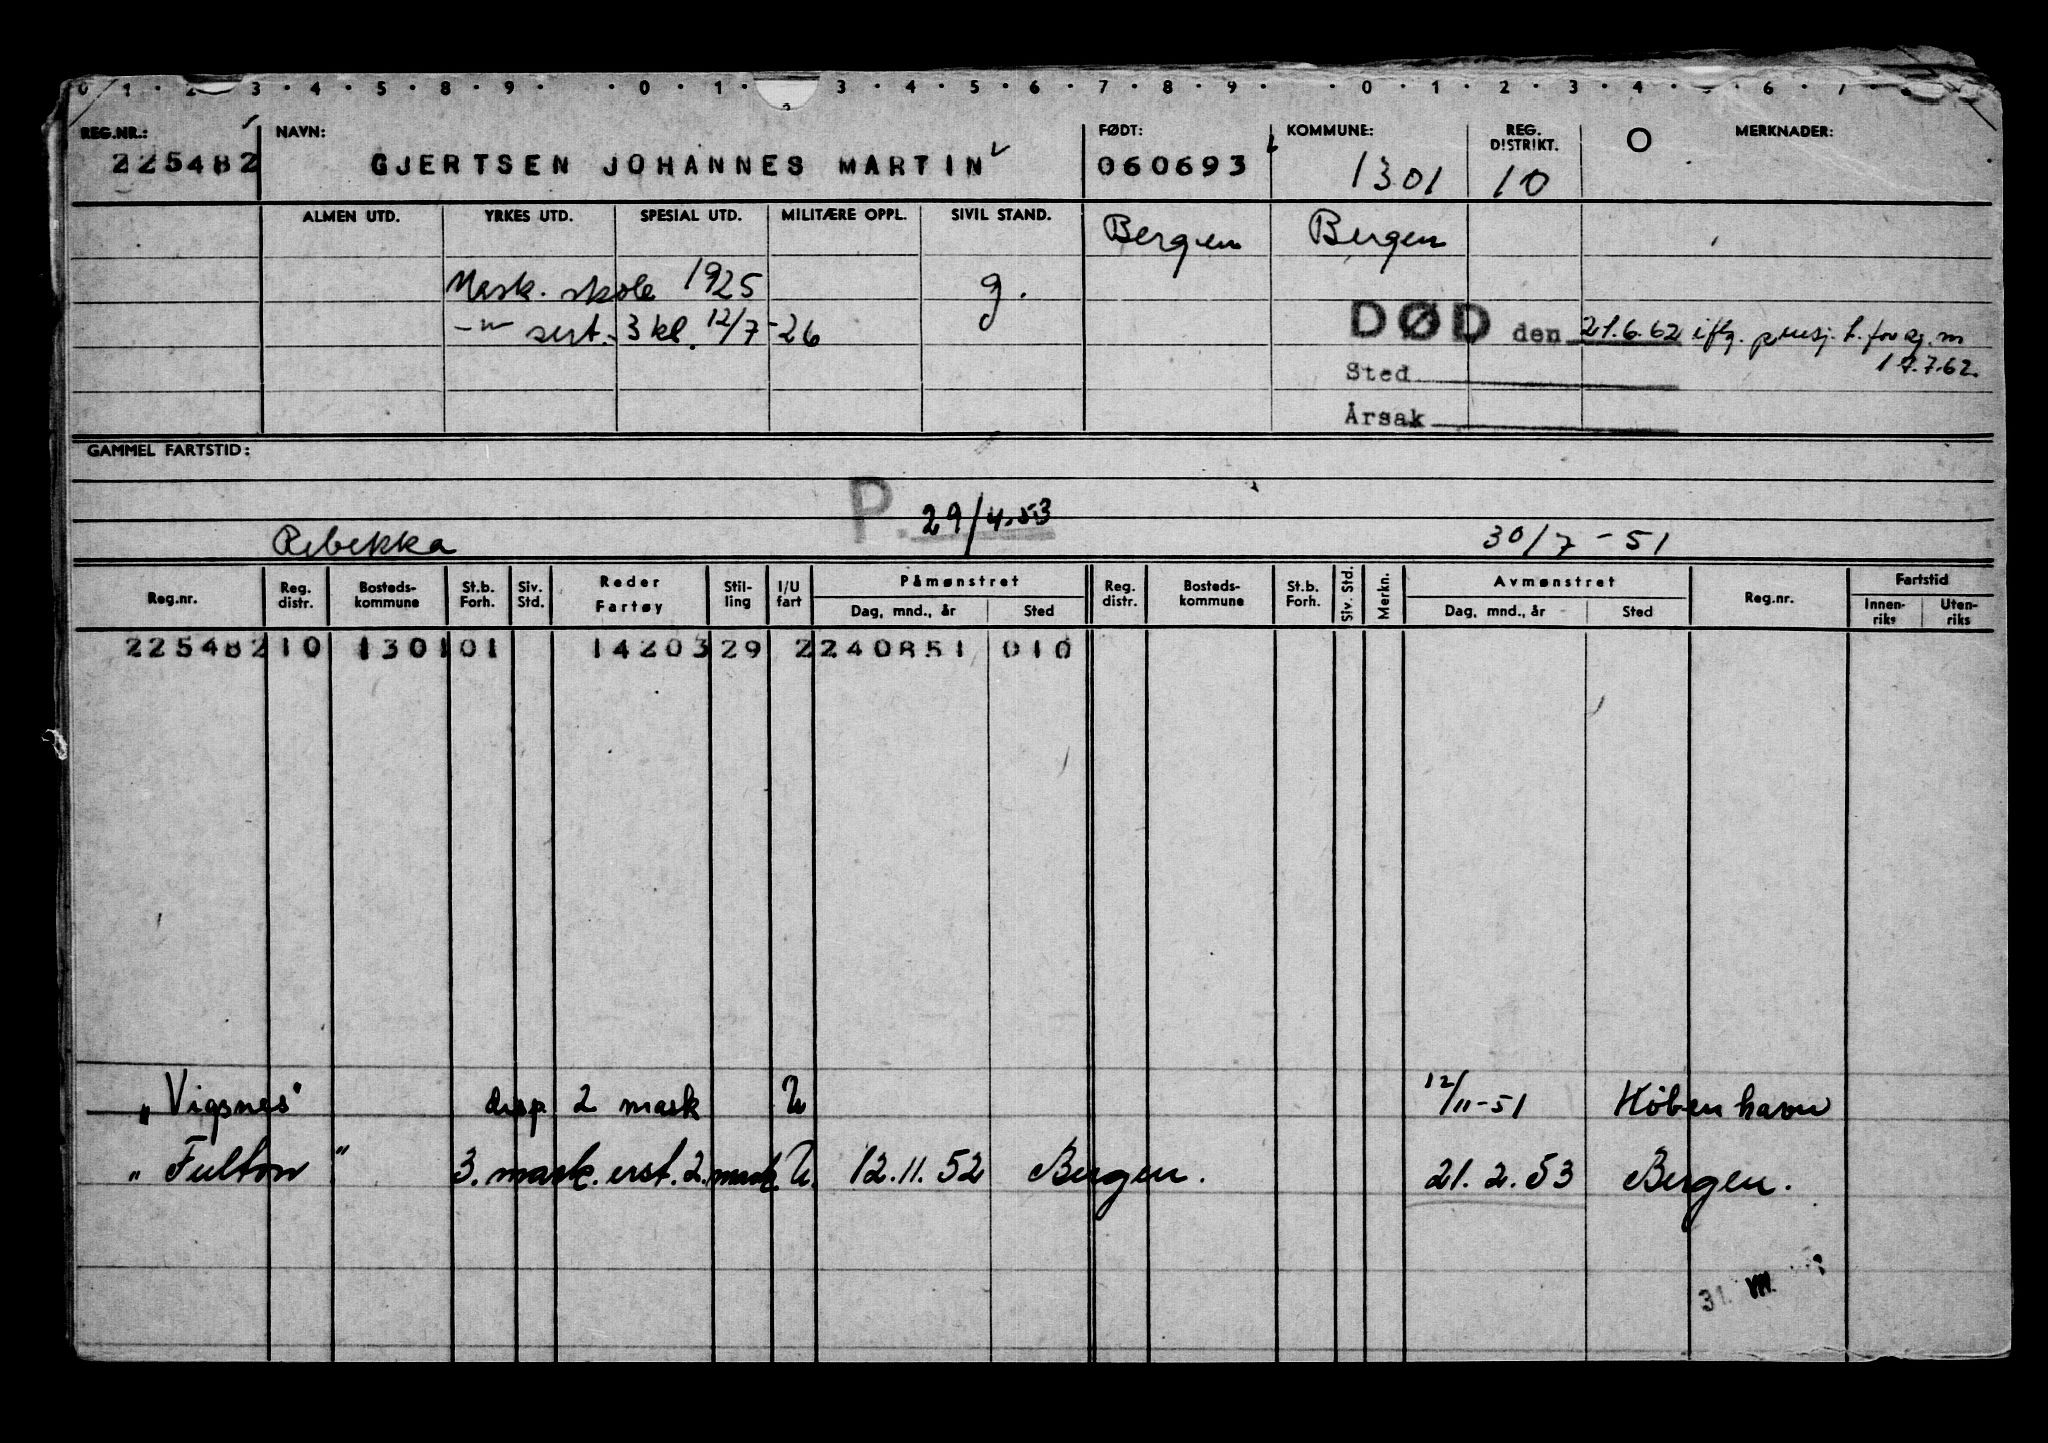 0 1 · 2 3 · 4 · 5 · 8 · 9 · · 0 · 1 · 3 · 4 · 5 · 6 · 7 · 8 · 9 · · 0 · 1 · 2 · 3 · 4 · 5 · 6 · 7
REG.NR.: NAVN: FØDT: KOMMUNE: REG. DISTRIKT. O MERKNADER:
225482 GJERTSEN JOHANNES MARTIN 060693 1301 10
ALMEN UTD. YRKES UTD. SPESIAL UTD. MILITÆRE OPPL. SIVIL STAND. Bergen Bergen
Mask. skole 1925 g.
–"– sert. 3 kl. 12/7-26
DØD den 21.6.62 iflg. pensj. t. for sj. m
17.7.62.
Sted
Årsak
GAMMEL FARTSTID:
P. 29/4.53
Rebekka 30/7-51
Reg.nr. Reg. distr. Bosteds-kommune St.b. Forh. Siv. Std. Reder Fartøy Stil-ling I/U fart Påmønstret Dag, mnd., år Sted Reg. distr. Bosteds-kommune St.b. Forh. Siv. Std. Merkn. Avmønstret Dag, mnd., år Sted Reg.nr. Fartstid Innen-riks Uten-riks
225482 10 1301 01 14203 29 2 240851 010
"Vigsnes" disp. 2 mask U 12/11-51 Köbenhavn
"Fulton" 3. mask. erst. 2. mask U. 12.11.52 Bergen. 21.2.53 Bergen.
31. VIII.